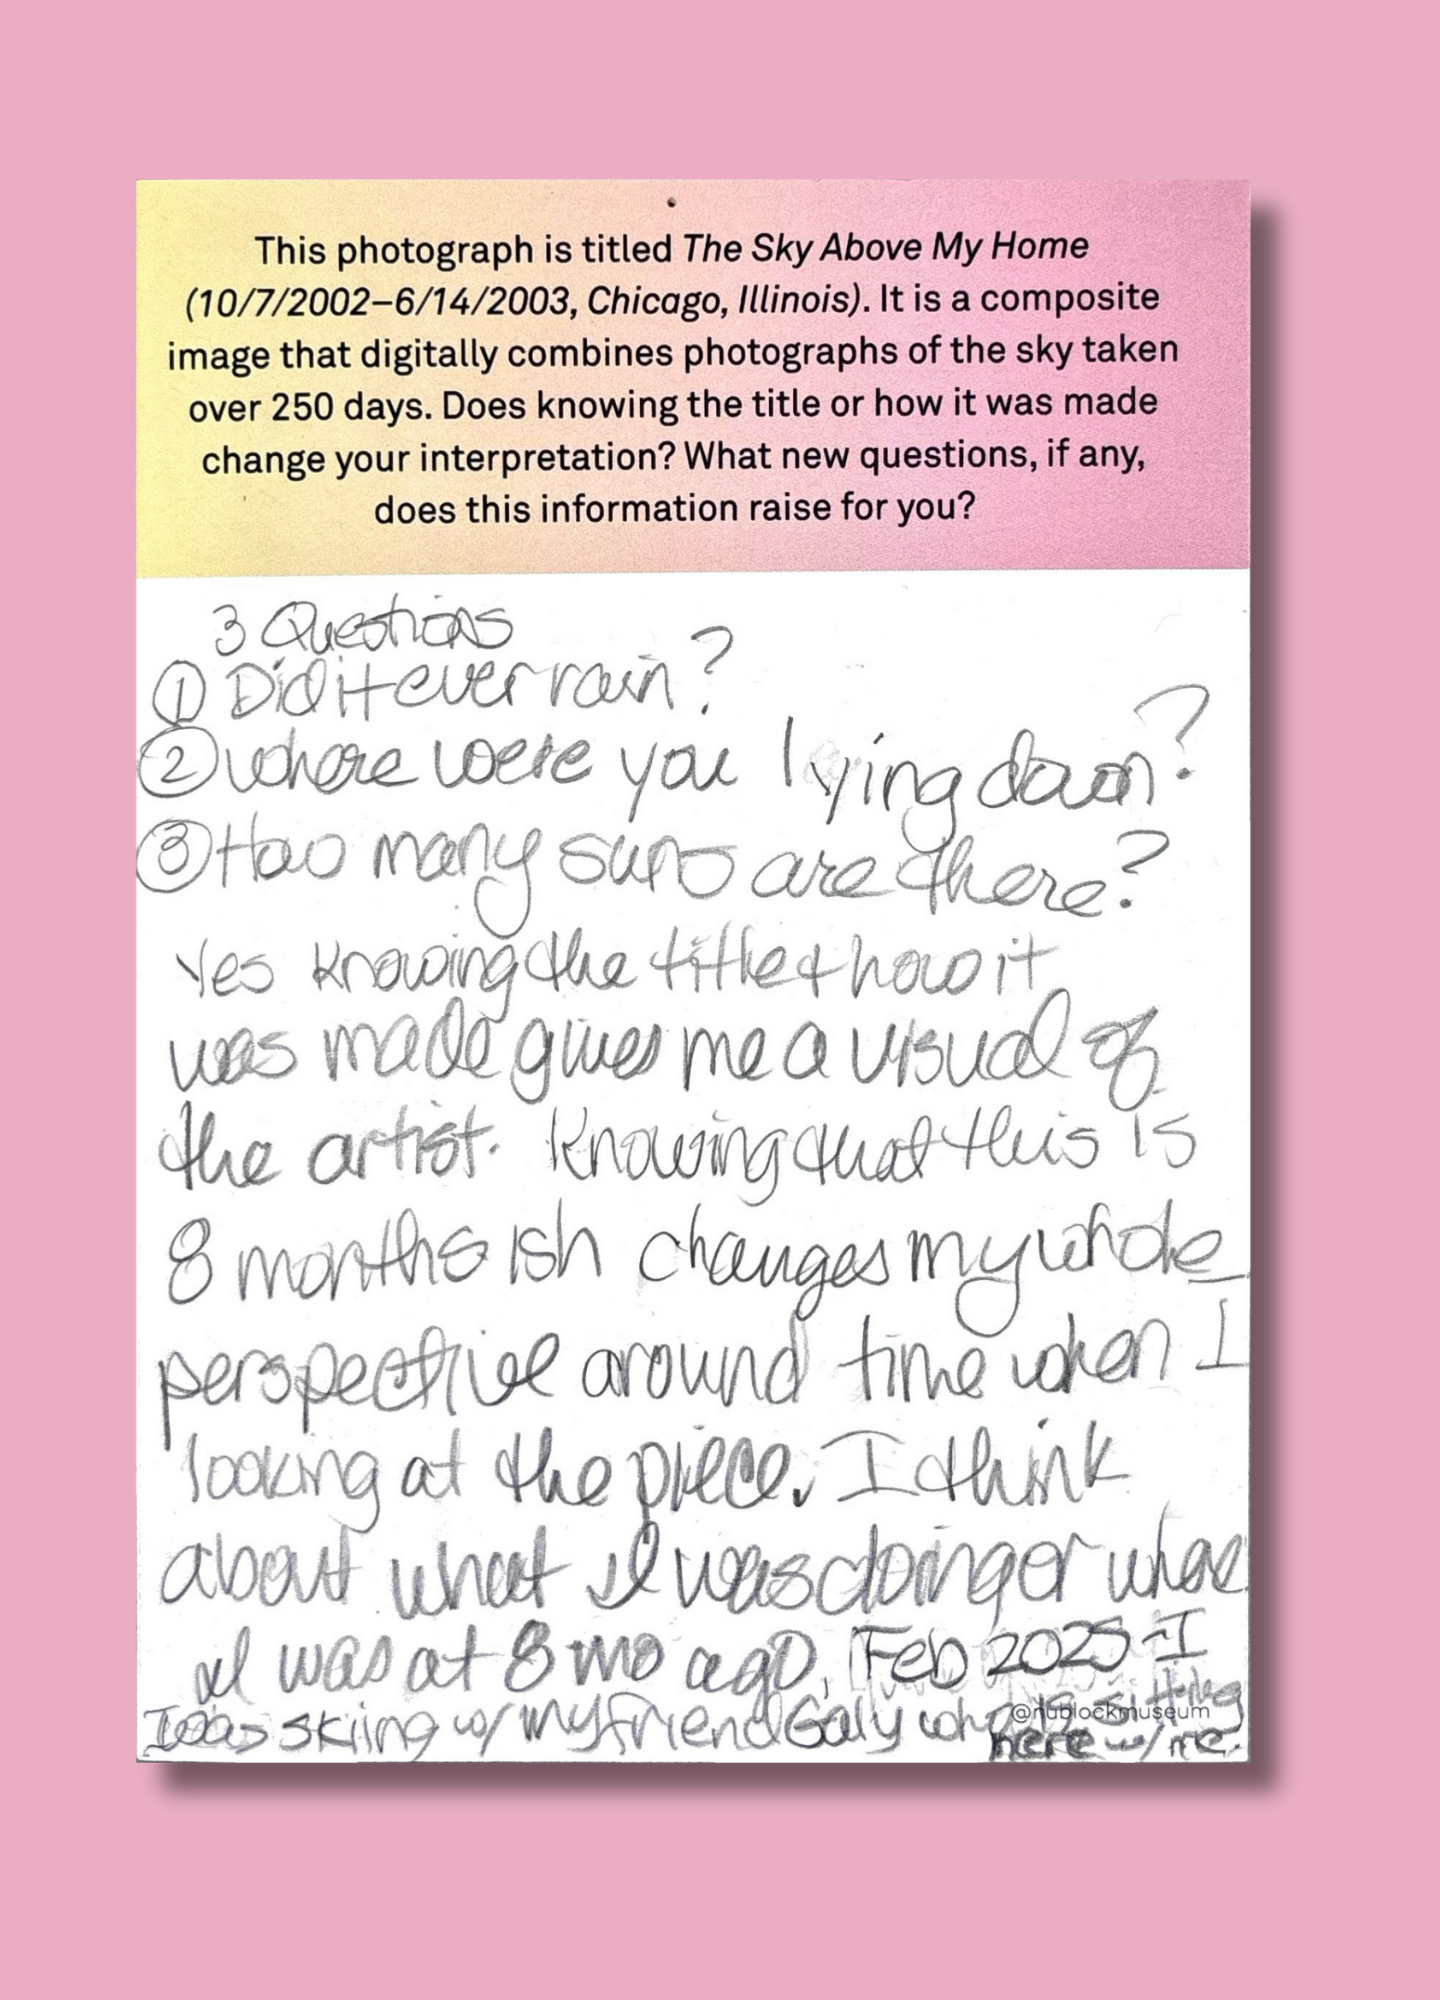 This photograph is titled The Sky Above My Home
(10/7/2002–6/14/2003, Chicago, Illinois). It is a composite
image that digitally combines photographs of the sky taken
over 250 days. Does knowing the title or how it was made
change your interpretation? What new questions, if any,
does this information raise for you?
3 Questions
① Did it ever rain?
② Where were you lying down?
③ How many suns are there?
Yes knowing the title + how it
was made gives me a visual of
the artist. Knowing that this is
8 months ish changes my whole
perspective around time when I
looking at the piece. I think
about what I was doing or where
I was at 8 mo ago, Feb 2025 - I
I was skiing w/ my friend Galy who is sitting
@nublockmuseum
here w/ me.